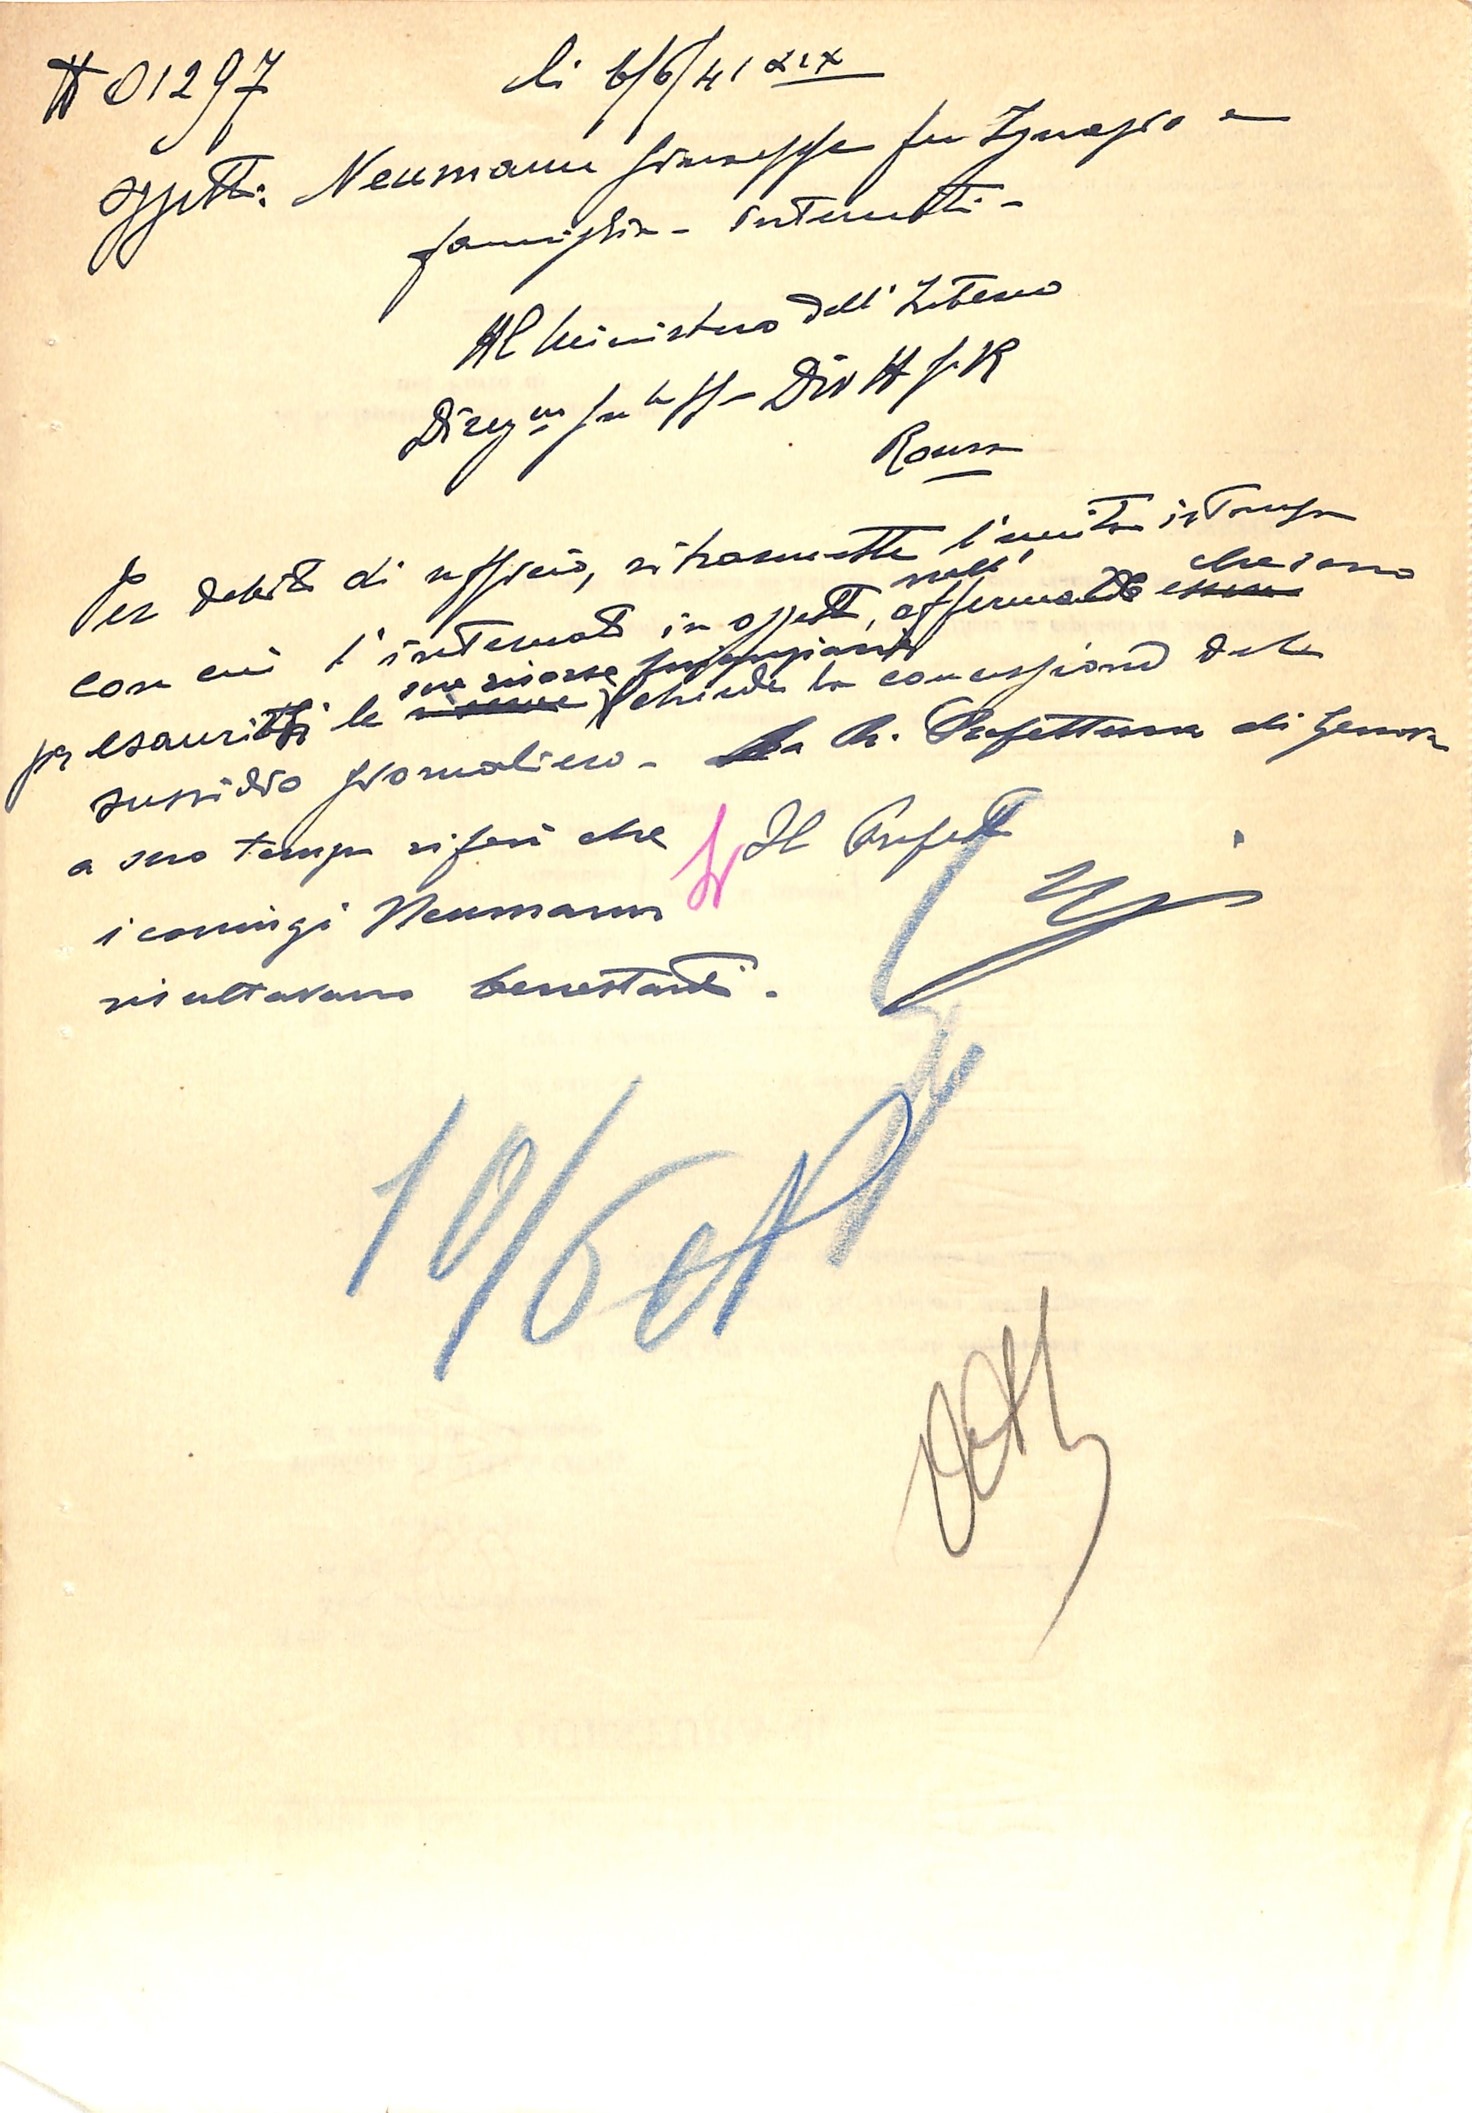 A 01297
li 6/6/41 XIX
Oggetto: Neumann Giuseppe fu Ignazio e
famiglia - internati -
Al Ministero dell'Interno
Direz. Gen. - Div A G R
Roma
Per debito di ufficio, si trasmette l'unita istanza
con cui l'internato in oggetto, nell' affermando essere che sono
per esauriti le risorse sue risorse chiede la concessione del
sussidio giornaliero - La R. Prefettura di Genova
a suo tempo riferì che
i coniugi Neumann
risultavano benestanti.
Il Prefetto
10/6